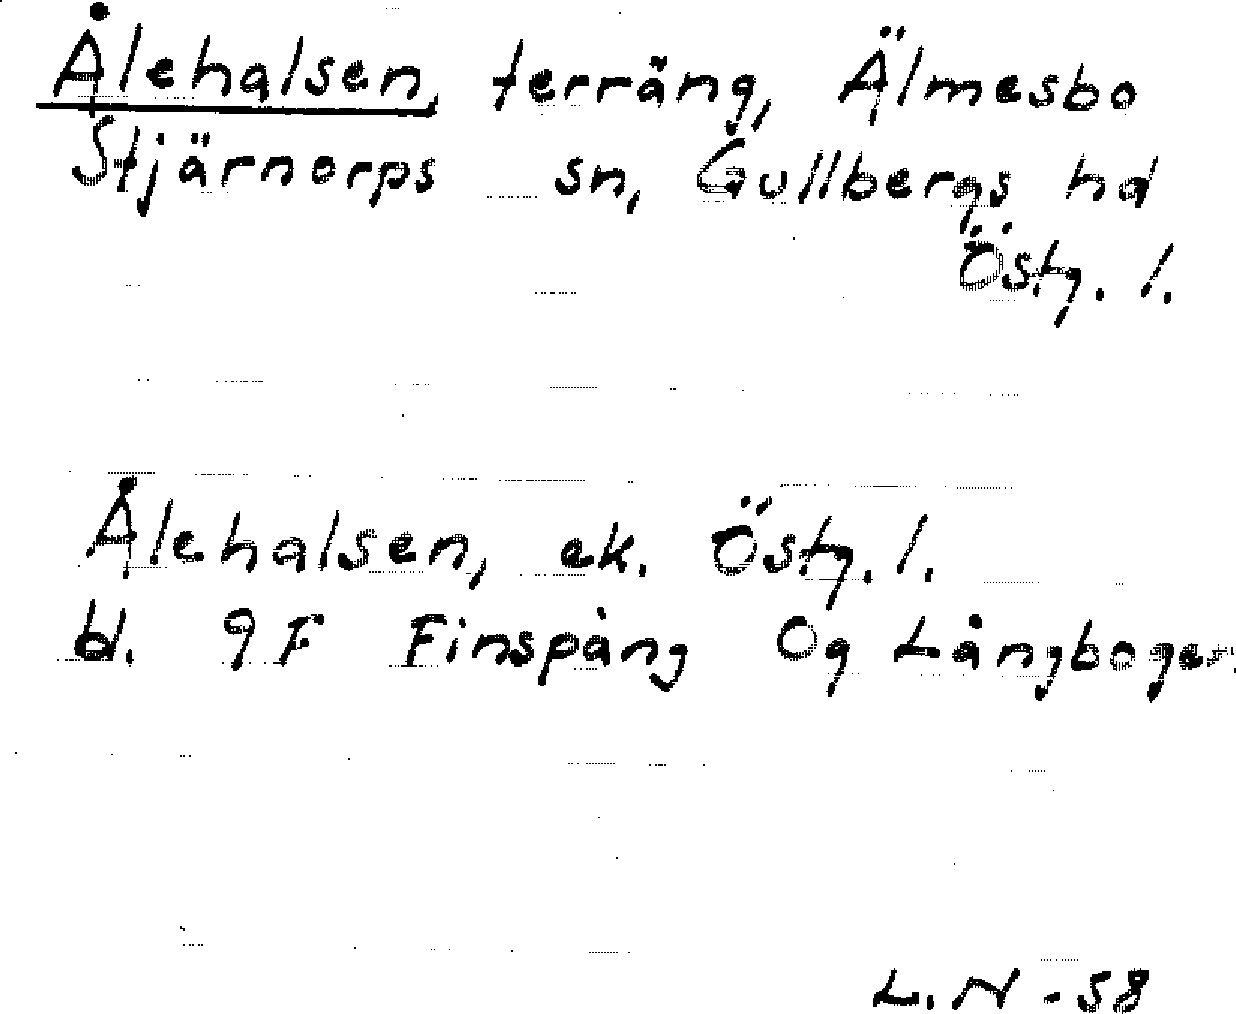 Ålehalsen, terräng, Älmesbo
Stjärnorps sn, Gullbergs hd
Östg. l.
Ålehalsen, ek. Östg. l.
bl. 9F Finspång Og Långbogen.
L. N - 58